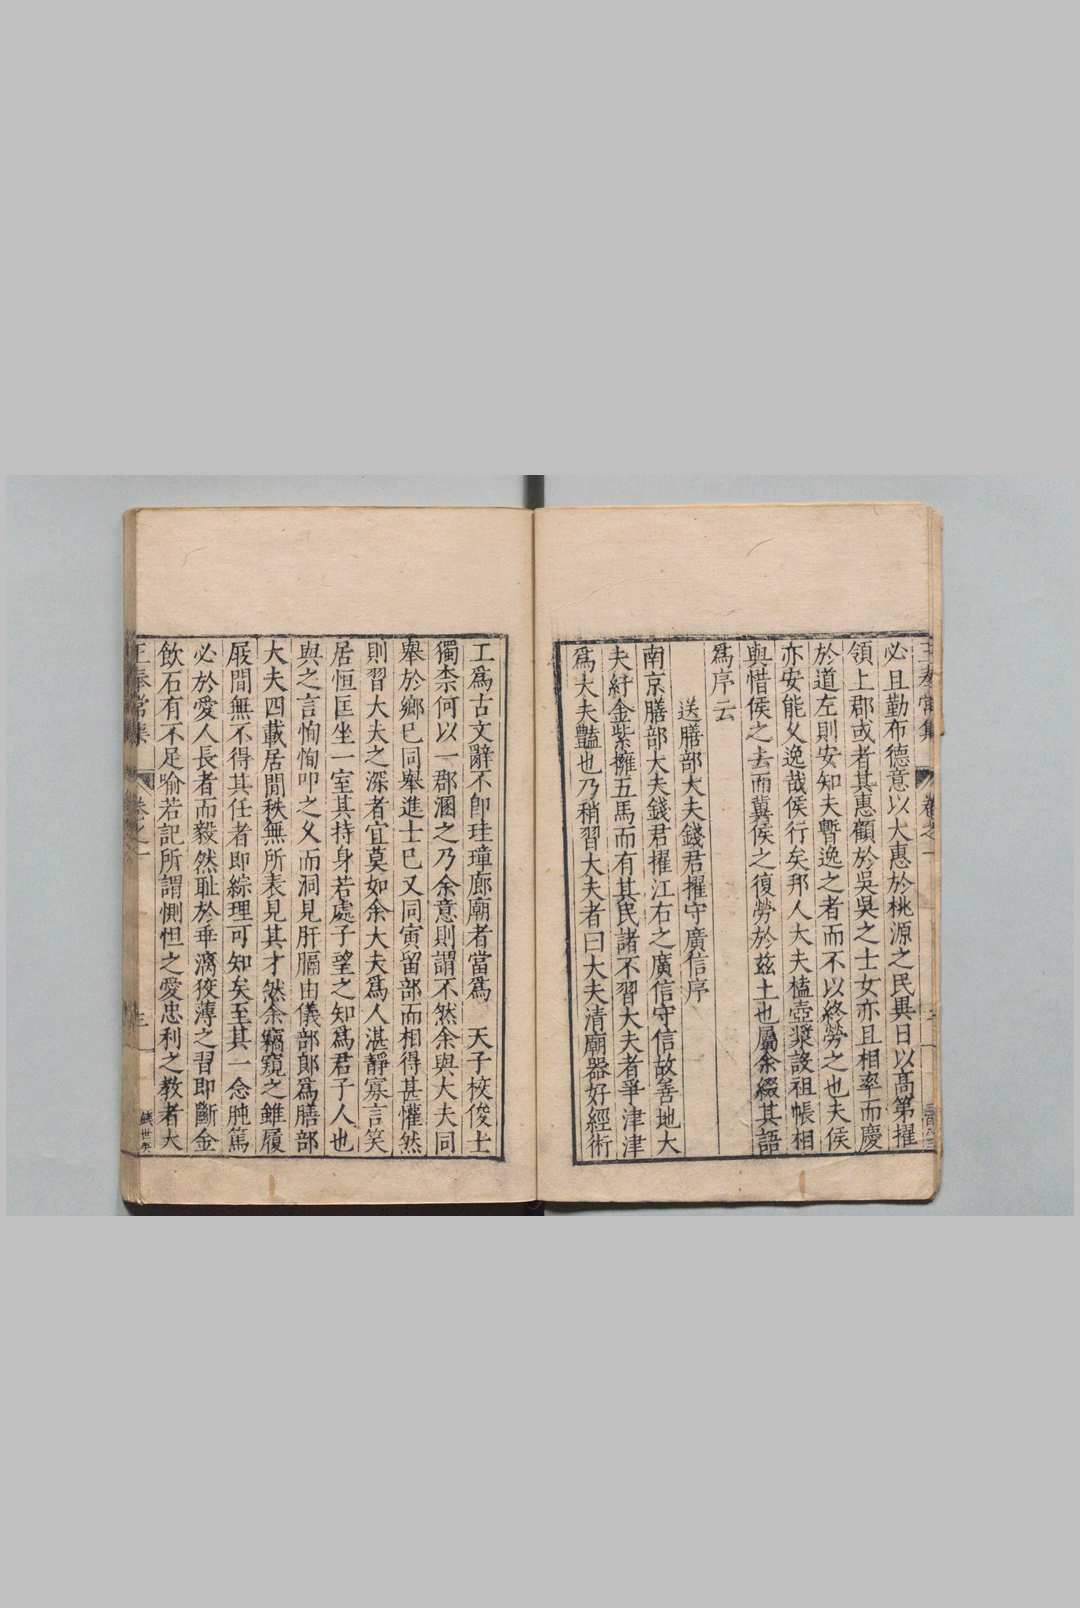 必且勤布德意以大惠於桃源之民異日以髙第擢
領上郡或者其惠顧於吳吳之士女亦且相率而慶
於道左則安知夫暫逸之者而不以終勞之也夫侯
亦安能乆逸哉侯行矣邦人大夫榼壺漿設祖帳相
與惜侯之去而冀侯之復勞於兹土也屬余綴其語
爲序云
送膳部大夫錢君擢守廣信序
南京膳部大夫錢君擢江右之廣信守信故善地大
夫紆金紫擁五馬而有其民諸不習大夫者爭津津
爲大夫豔也乃稍習大夫者曰大夫清廟器好經術
工爲古文辭不卽珪璋廊廟者當爲 天子校俊士
獨柰何以一郡溷之乃余意則謂不然余與大夫同
舉於鄉已同舉進士已又同寅留部而相得甚懽然
則習大夫之深者宜莫如余大夫爲人湛靜寡言笑
居恒匡坐一室其持身若處子望之知爲君子人也
與之言恂恂叩之乆而洞見肝膈由儀部郎爲膳部
大夫四載居閒秩無所表見其才然余竊窺之錐履
屐間無不得其任者即綜理可知矣至其一念肫篤
必於愛人長者而毅然耻於乖漓狡薄之習即斷金
飲石有不足喻若記所謂惻怛之愛忠利之教者大
王奉常集 卷之一 三